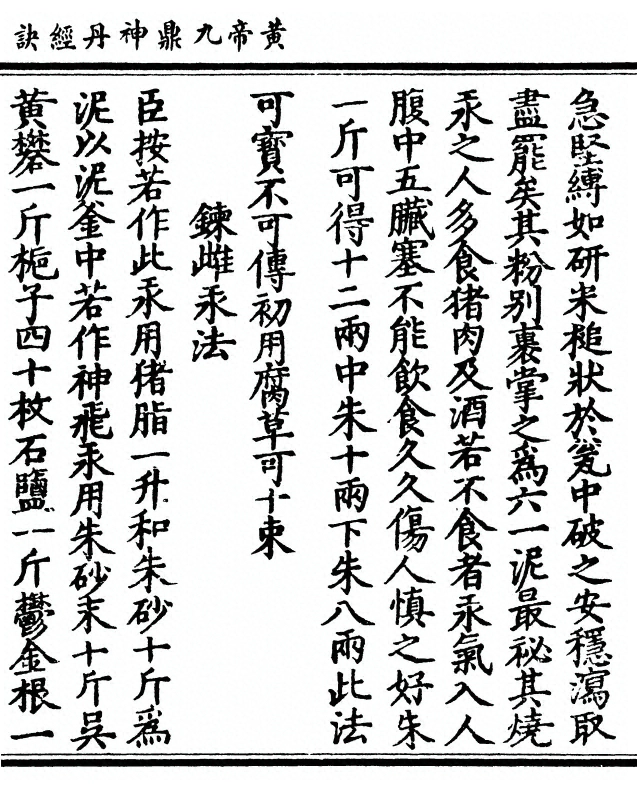 黃帝九鼎神丹經訣
急堅縳如研米槌狀於瓮中破之安穩瀉取
盡罷矣其粉別裹掌之爲六一泥最祕其燒
汞之人多食猪肉及酒若不食者汞氣入人
腹中五臟塞不能飲食久久傷人慎之好朱
一斤可得十二兩中朱十兩下朱八兩此法
可寶不可傳初用腐草可十束
鍊雌汞法
臣按若作此汞用猪脂一升和朱砂十斤爲
泥以泥釜中若作神飛汞用朱砂末十斤吳
黃礬一斤梔子四十枚石鹽一斤鬱金根一